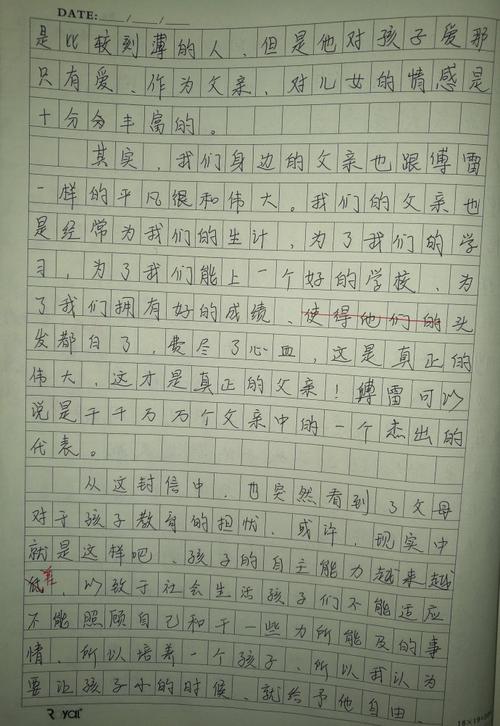 DATE: / /
是比较刻薄的人、但是他对孩子爱那
只有爱、作为父亲、对儿女的情感是
十分分丰富的。
其实、我们身边的父亲也跟傅雷
一样的平凡很和伟大。我们的父亲也
是经常为我们的生计、为了我们的学
习、为了我们能上一个好的学校、为
了我们拥有好的成绩、使得他们的头
发都白了、费尽了心血、这是真正的
伟大、这才是真正的父亲！傅雷可以
说是千千万万个父亲中的一个杰出的
代表。
从这封信中、也突然看到了父母
对于孩子教育的担忧、或许、现实中
就是这样吧、孩子的自主能力越来越
低差、以致于社会生活孩子们不能适应
不能照顾自己和干一些力所能及的事
情、所以培养一个孩子、所以我认为
要让孩子小的时候、就给予他自由、
Royal